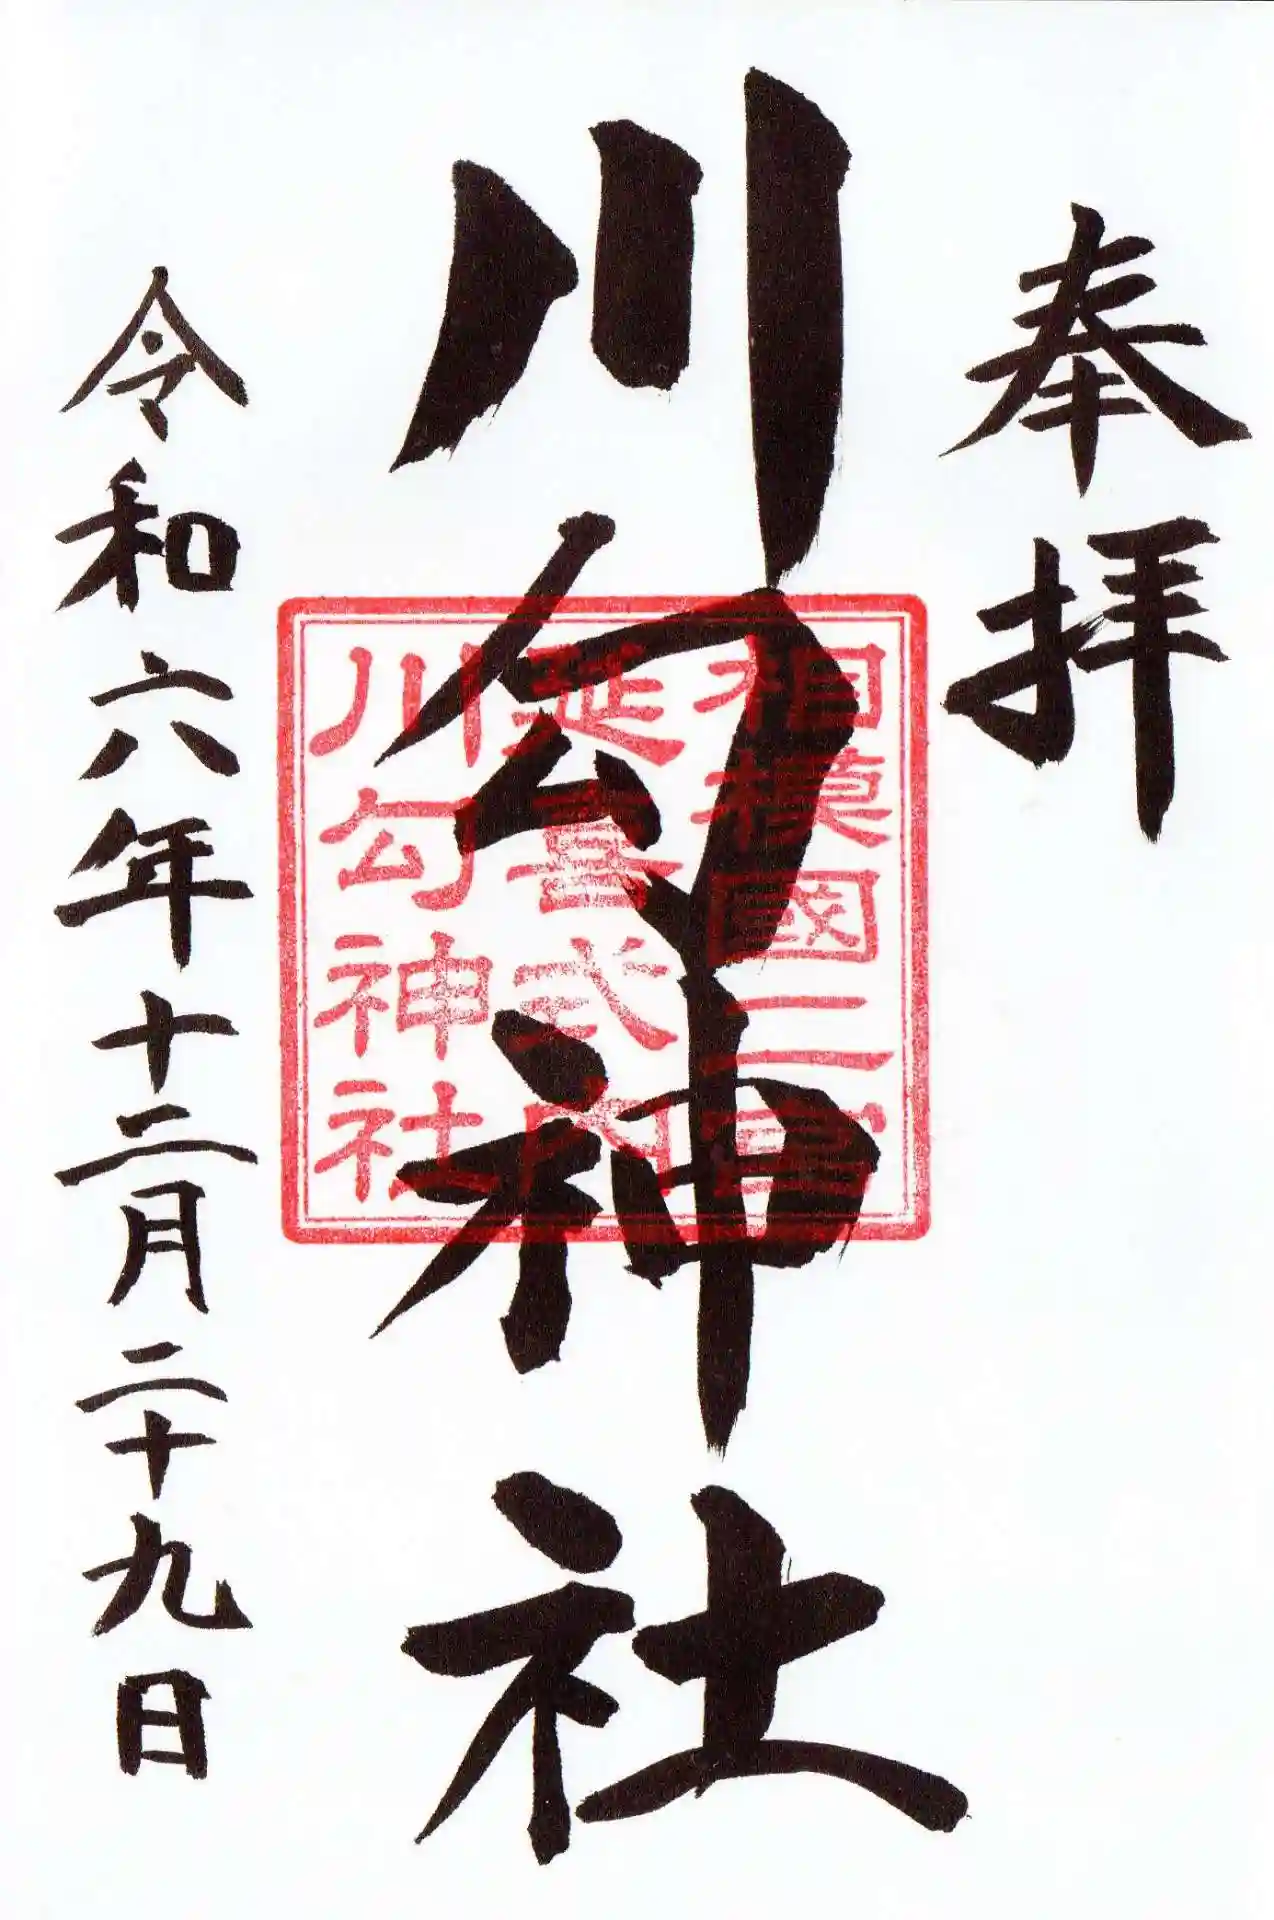 奉拝
川勾神社
相模國二宮
延喜式内
川勾神社
令和六年十二月二十九日